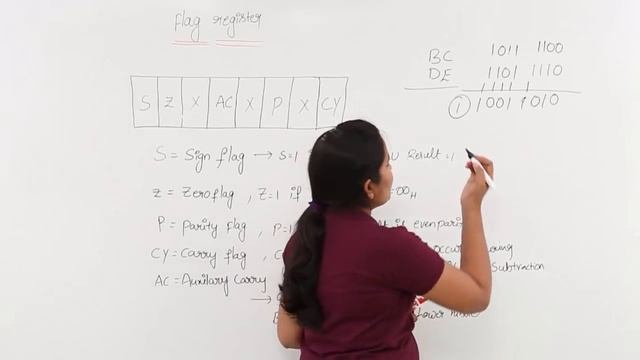 Flag register
BC 1011 1100
DE 1101 1110
1 1001 1010
S Z X AC X P X CY
S = Sign flag → S=1 Result =1
Z = Zero flag , Z=1 if =00H
P = Parity flag , P=1 is even parity
CY = Carry flag , C occur during
Subtraction
AC = Auxilary Carry
→
lower